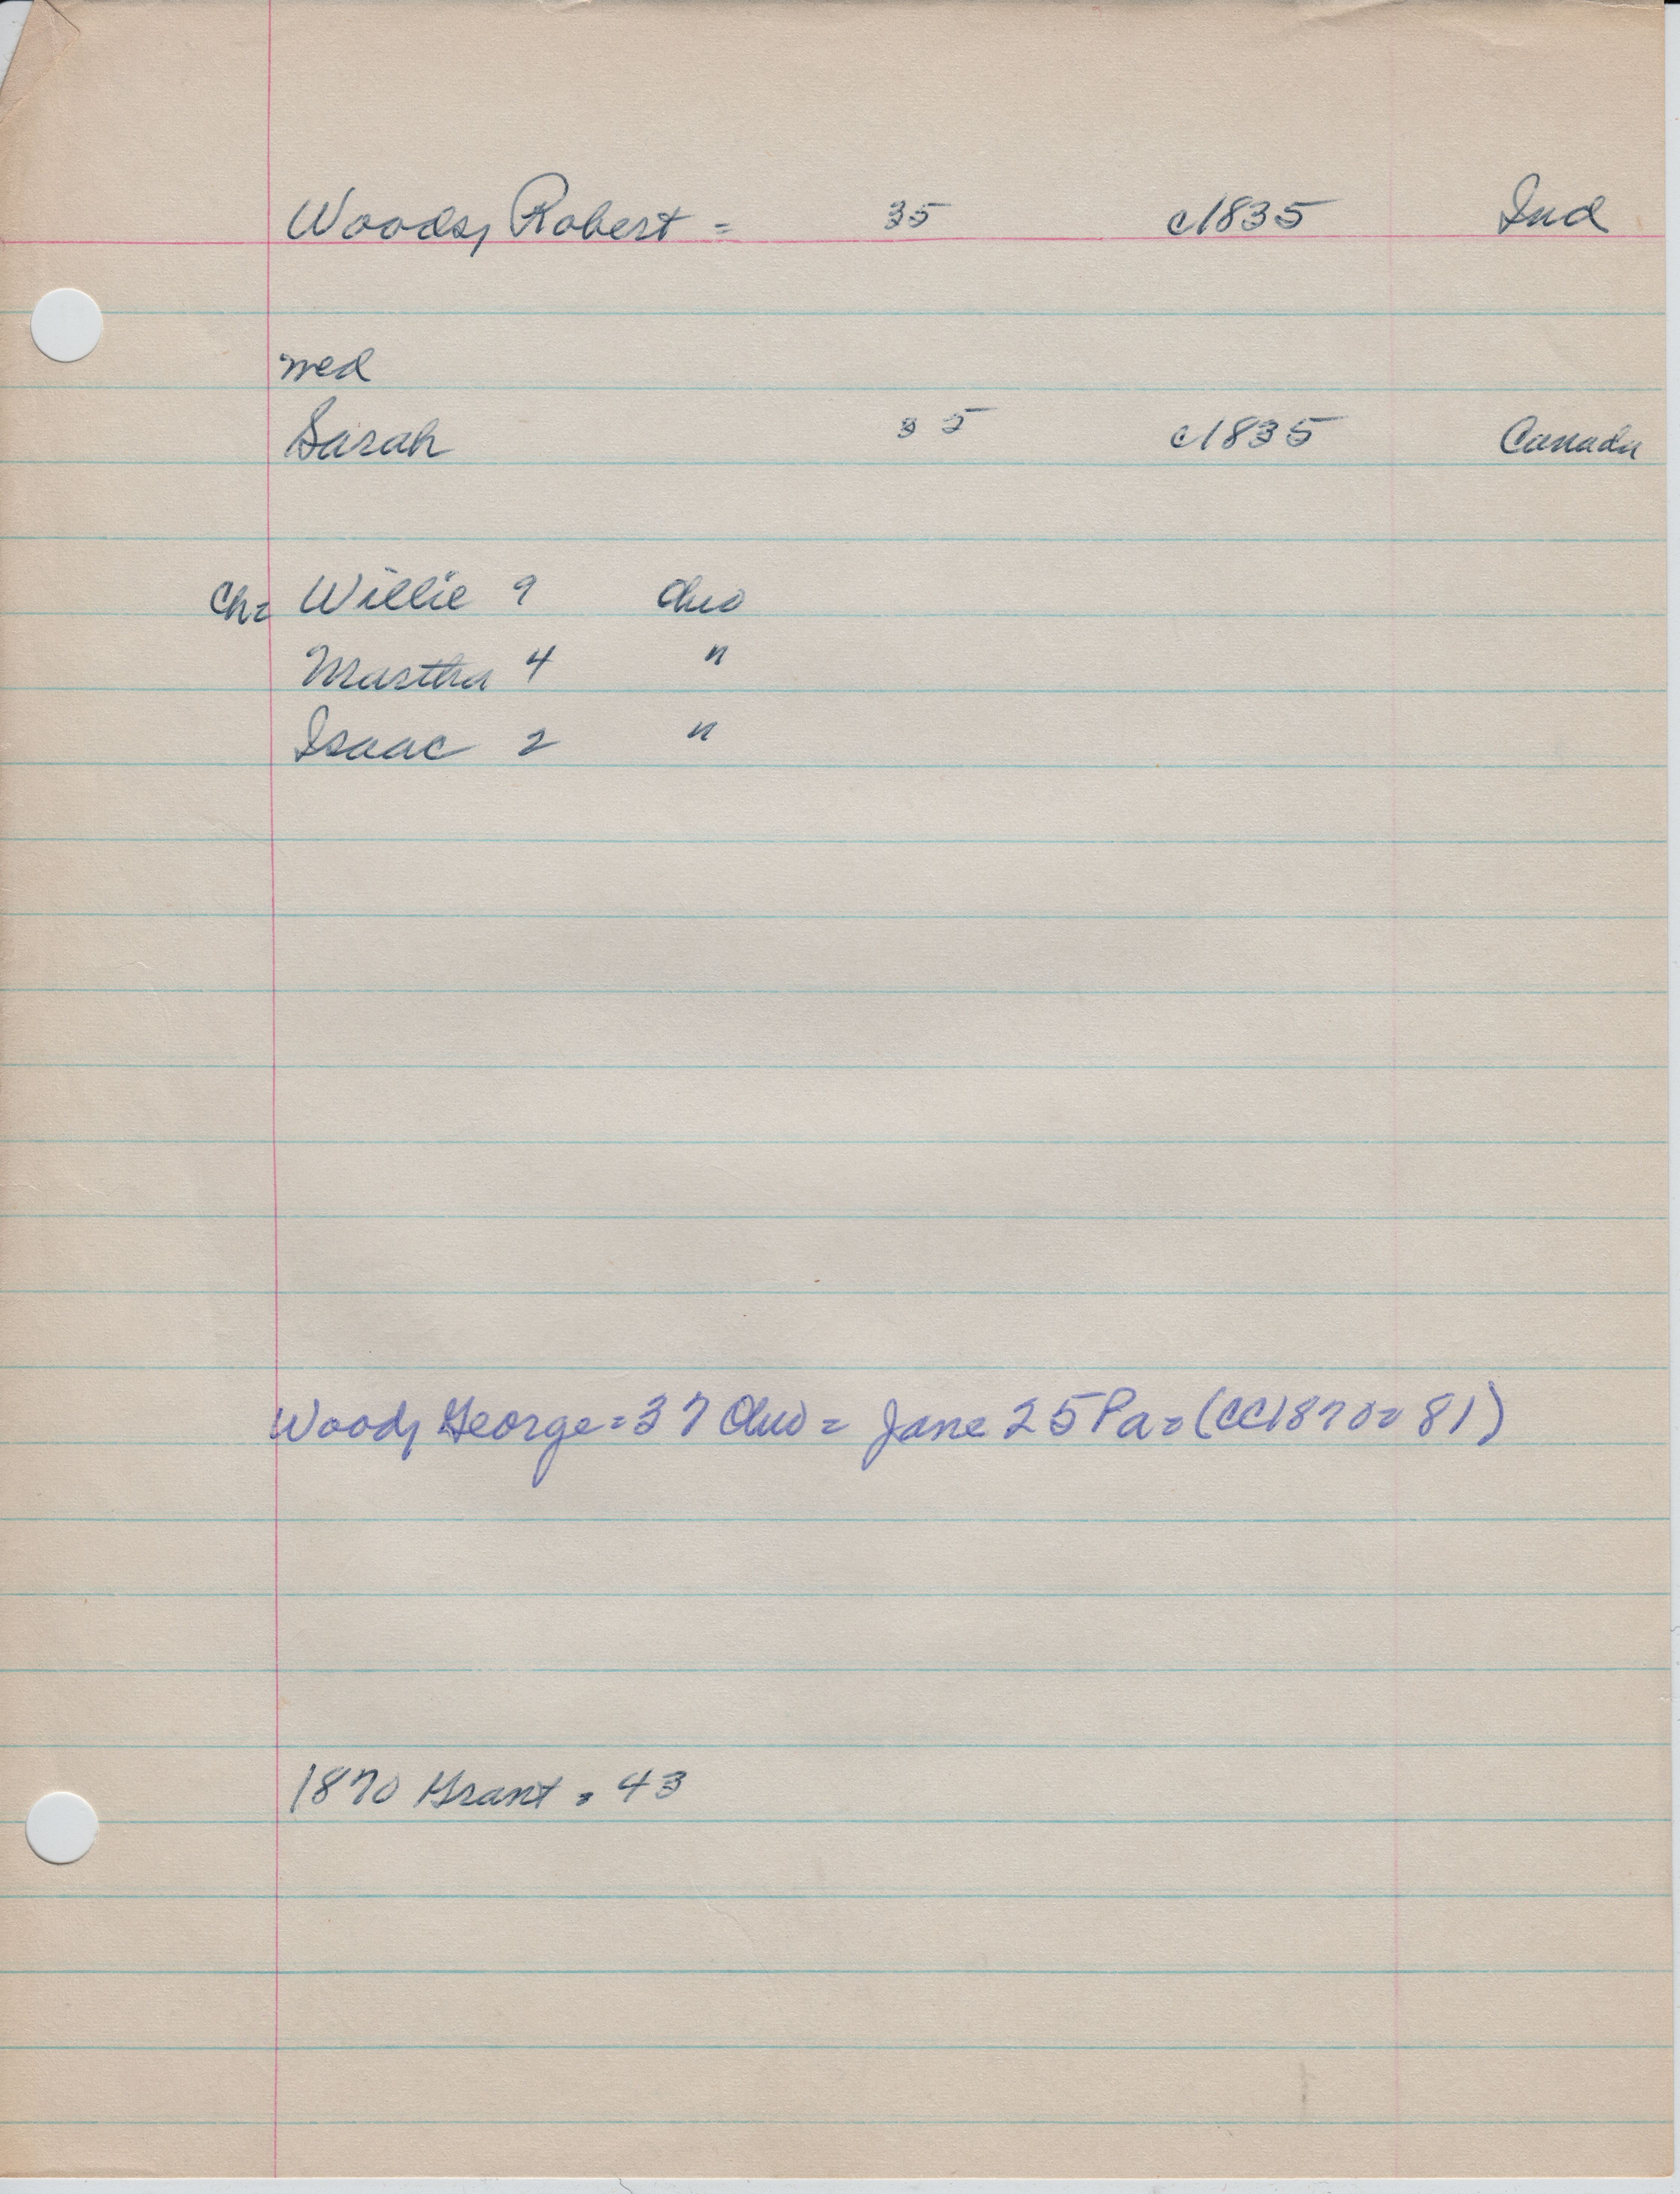 Woods, Robert = 35 c1835 Ind
med
Sarah 35 c1835 Canada
Ch= Willie 9 Ohio
Martha 4 "
Isaac 2 "
Woods George = 37 Ohio = Jane 25 Pa = (CC1870= 81)
1870 Grant = 43